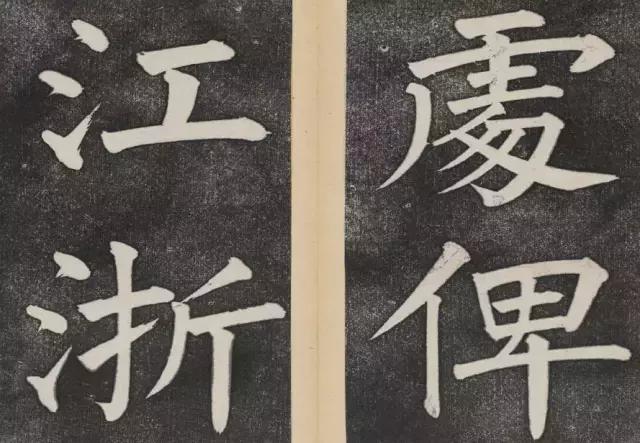 處俾
江浙